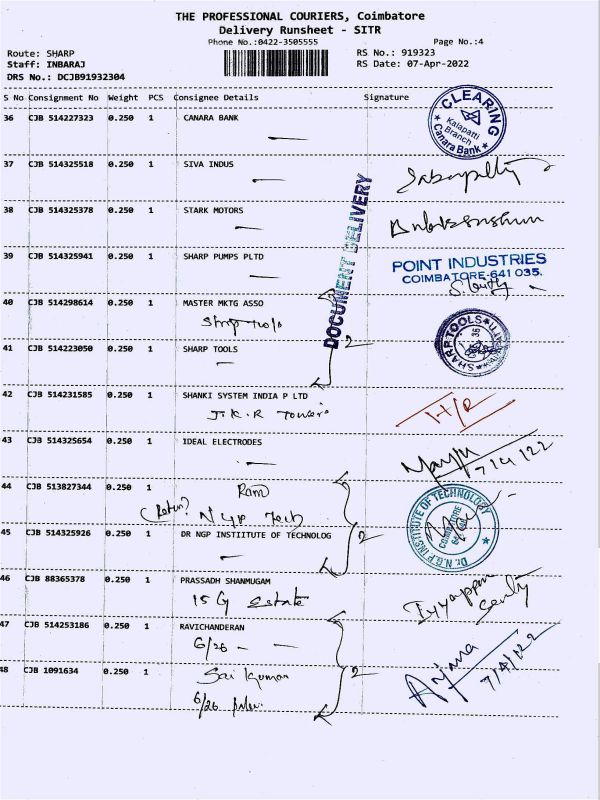 THE PROFESSIONAL COURIERS, Coimbatore
Delivery Runsheet - SITR
Phone No.:0422-3505555 Page No.:4
Route: SHARP RS No.: 919323
Staff: INBARAJ RS Date: 07-Apr-2022
DRS No.: DCJB91932304
S No Consignment No Weight PCS Consignee Details Signature
36 CJB 514227323 0.250 1 CANARA BANK
CLEARING
Kalapatti
Branch
Canara Bank
37 CJB 514325518 0.250 1 SIVA INDUS
38 CJB 514325378 0.250 1 STARK MOTORS
DOCUMENT DELIVERY
39 CJB 514325941 0.250 1 SHARP PUMPS PLTD
POINT INDUSTRIES
COIMBATORE-641 035.
40 CJB 514298614 0.250 1 MASTER MKTG ASSO
Sharp tools
SHARP TOOLS
41 CJB 514223050 0.250 1 SHARP TOOLS
2
42 CJB 514231585 0.250 1 SHANKI SYSTEM INDIA P LTD
J.K.R Towers
H/R
43 CJB 514325654 0.250 1 IDEAL ELECTRODES
7/4/22
44 CJB 513827344 0.250 1 Ram
N G P Tech
Dr. N.G.P INSTITUTE OF TECHNOLOGY
COIMBATORE
45 CJB 514325926 0.250 1 DR NGP INSTIITUTE OF TECHNOLOG
2
46 CJB 88365378 0.250 1 PRASSADH SHANMUGAM
15 G Estate
Iyyappan
47 CJB 514253186 0.250 1 RAVICHANDERAN
6/26
2
48 CJB 1091634 0.250 1 Sai Kumar
6/26
Anjana
7/4/22